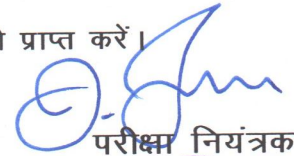 प्राप्त करें।
परीक्षा नियंत्रक